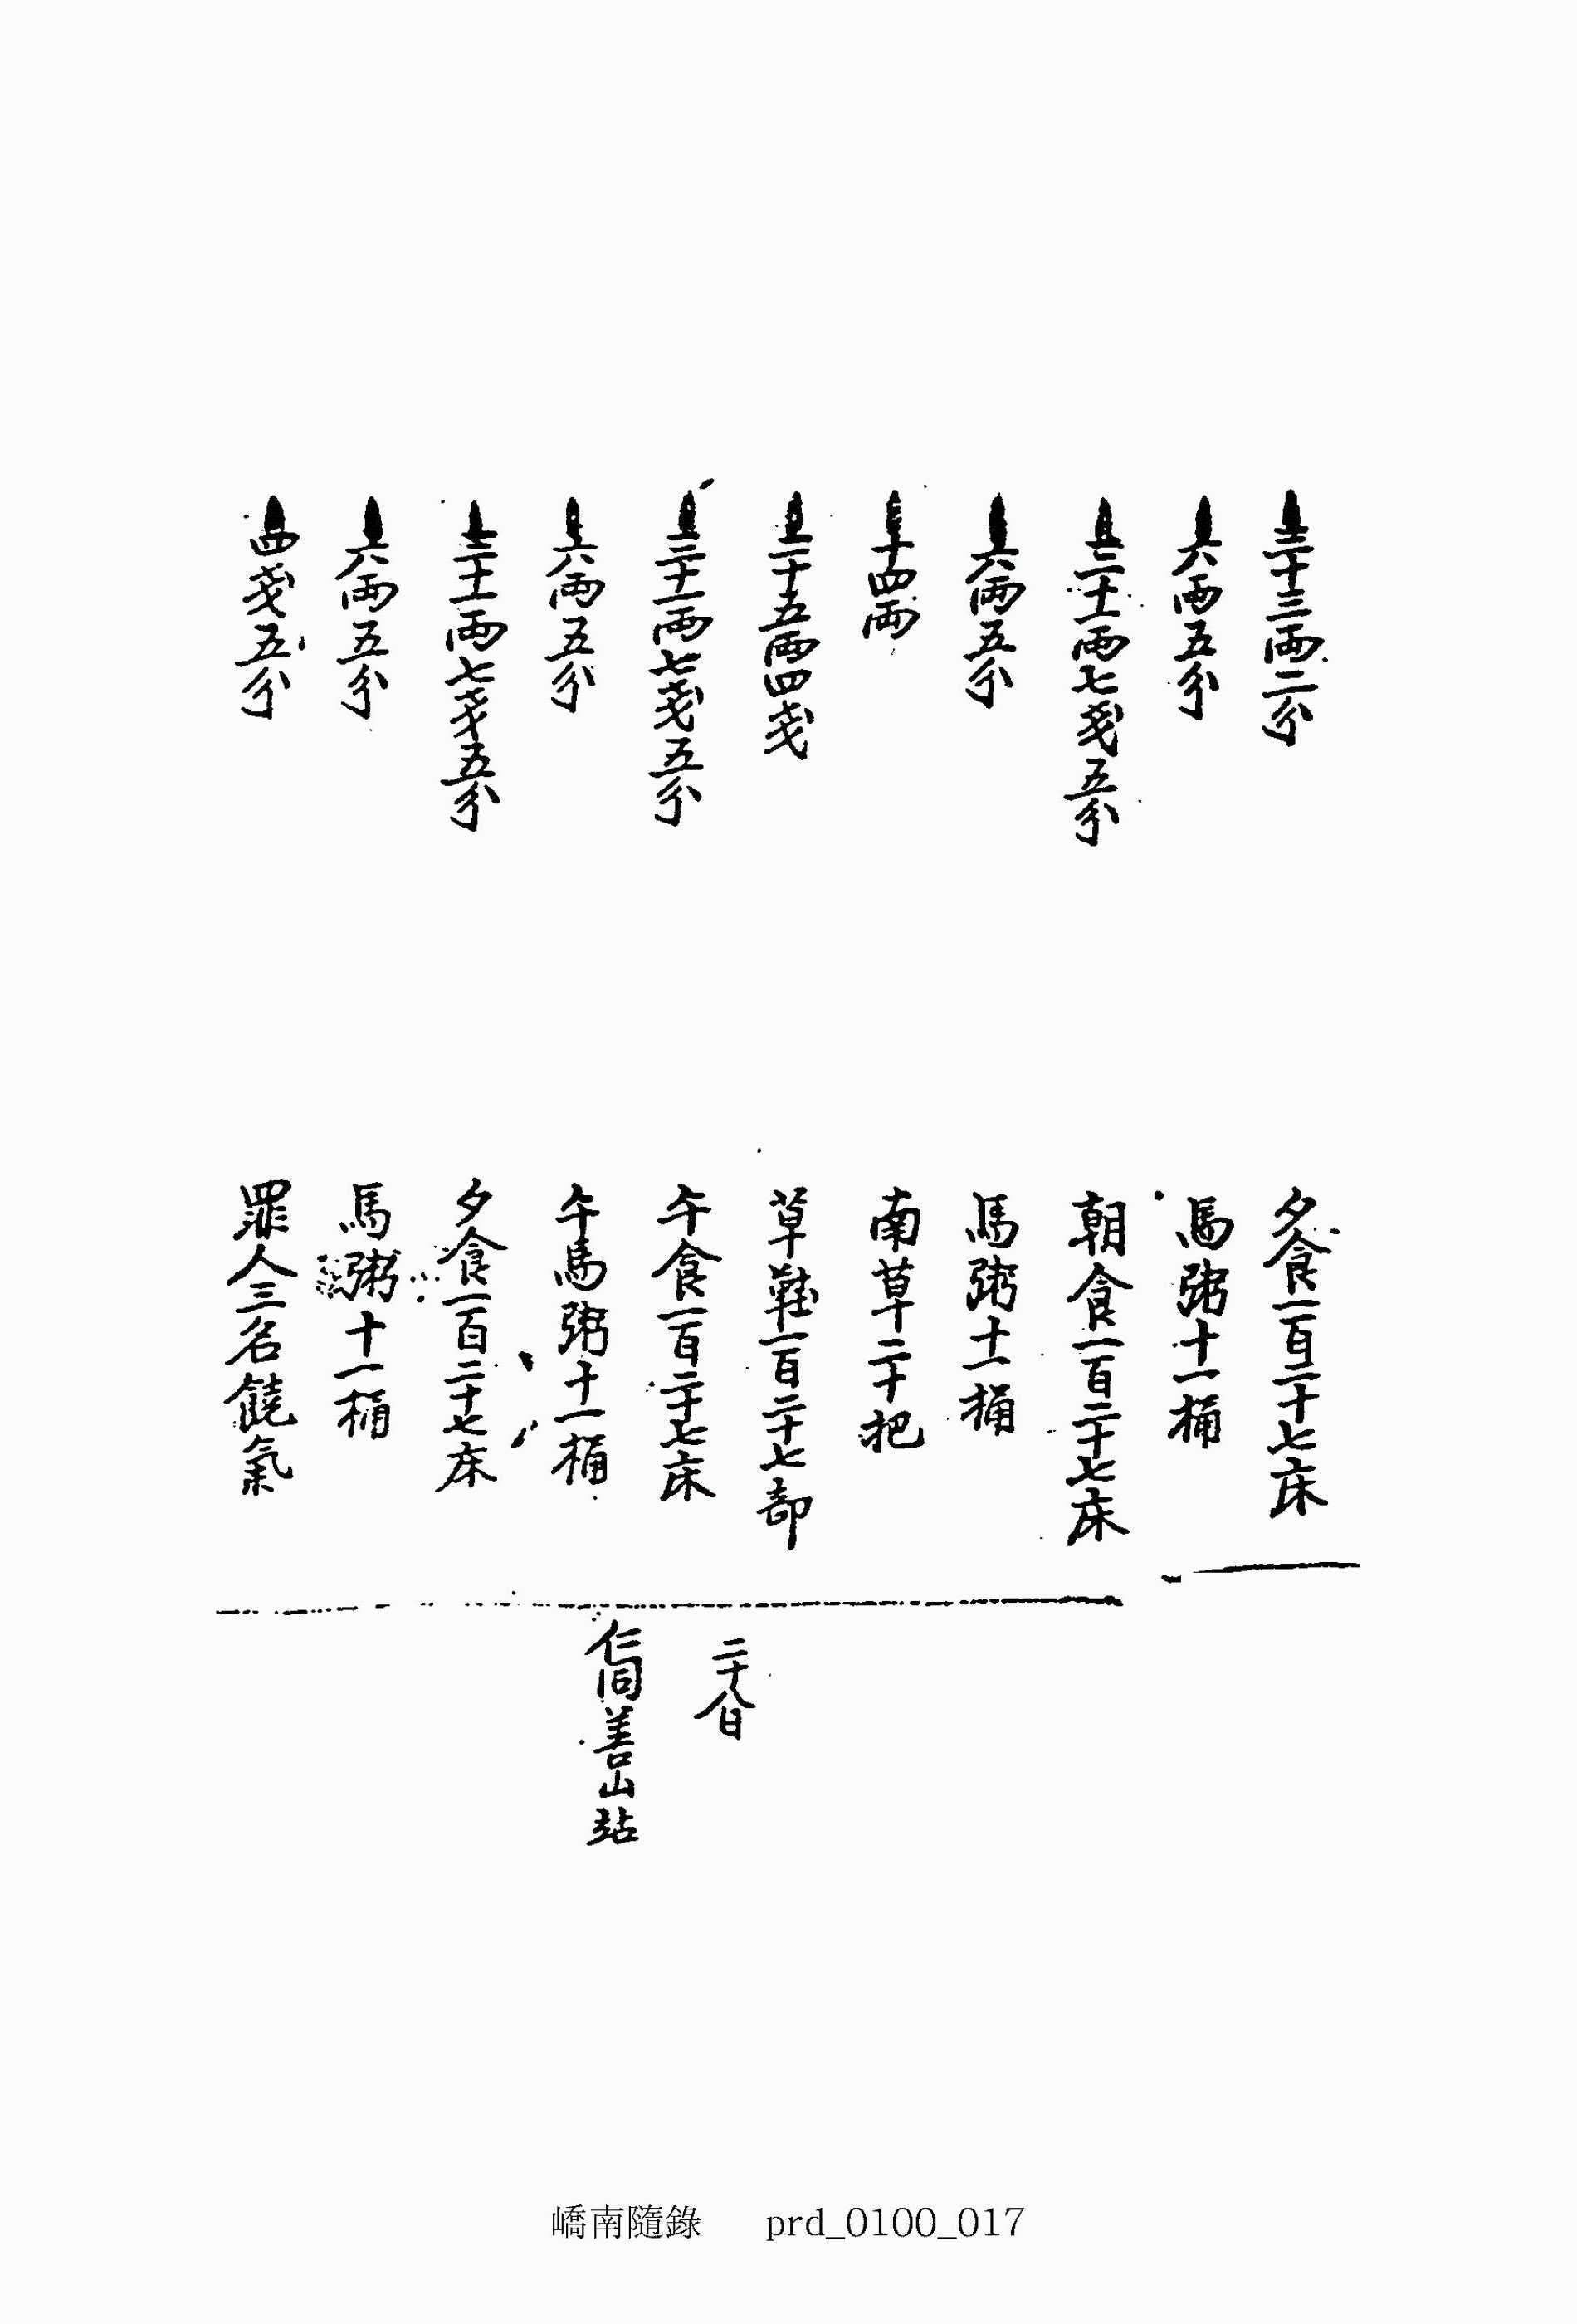 三十三両二分
夕食一百二十七床
六両五分
馬粥十一桶
三十一両七戔五分
朝食一百二十七床
六両五分
馬粥十一桶
十四両
南草二十把
二十五両四戔
草鞋一百二十七部
三十一両七戔五分
午食一百二十七床
六両五分
午馬粥十一桶
三十一両七戔五分
夕食一百二十七床
六両五分
馬粥十一桶
四戔五分
罪人三名饒氣
二十八日
仁同善山站
嶠南隨錄 prd_0100_017